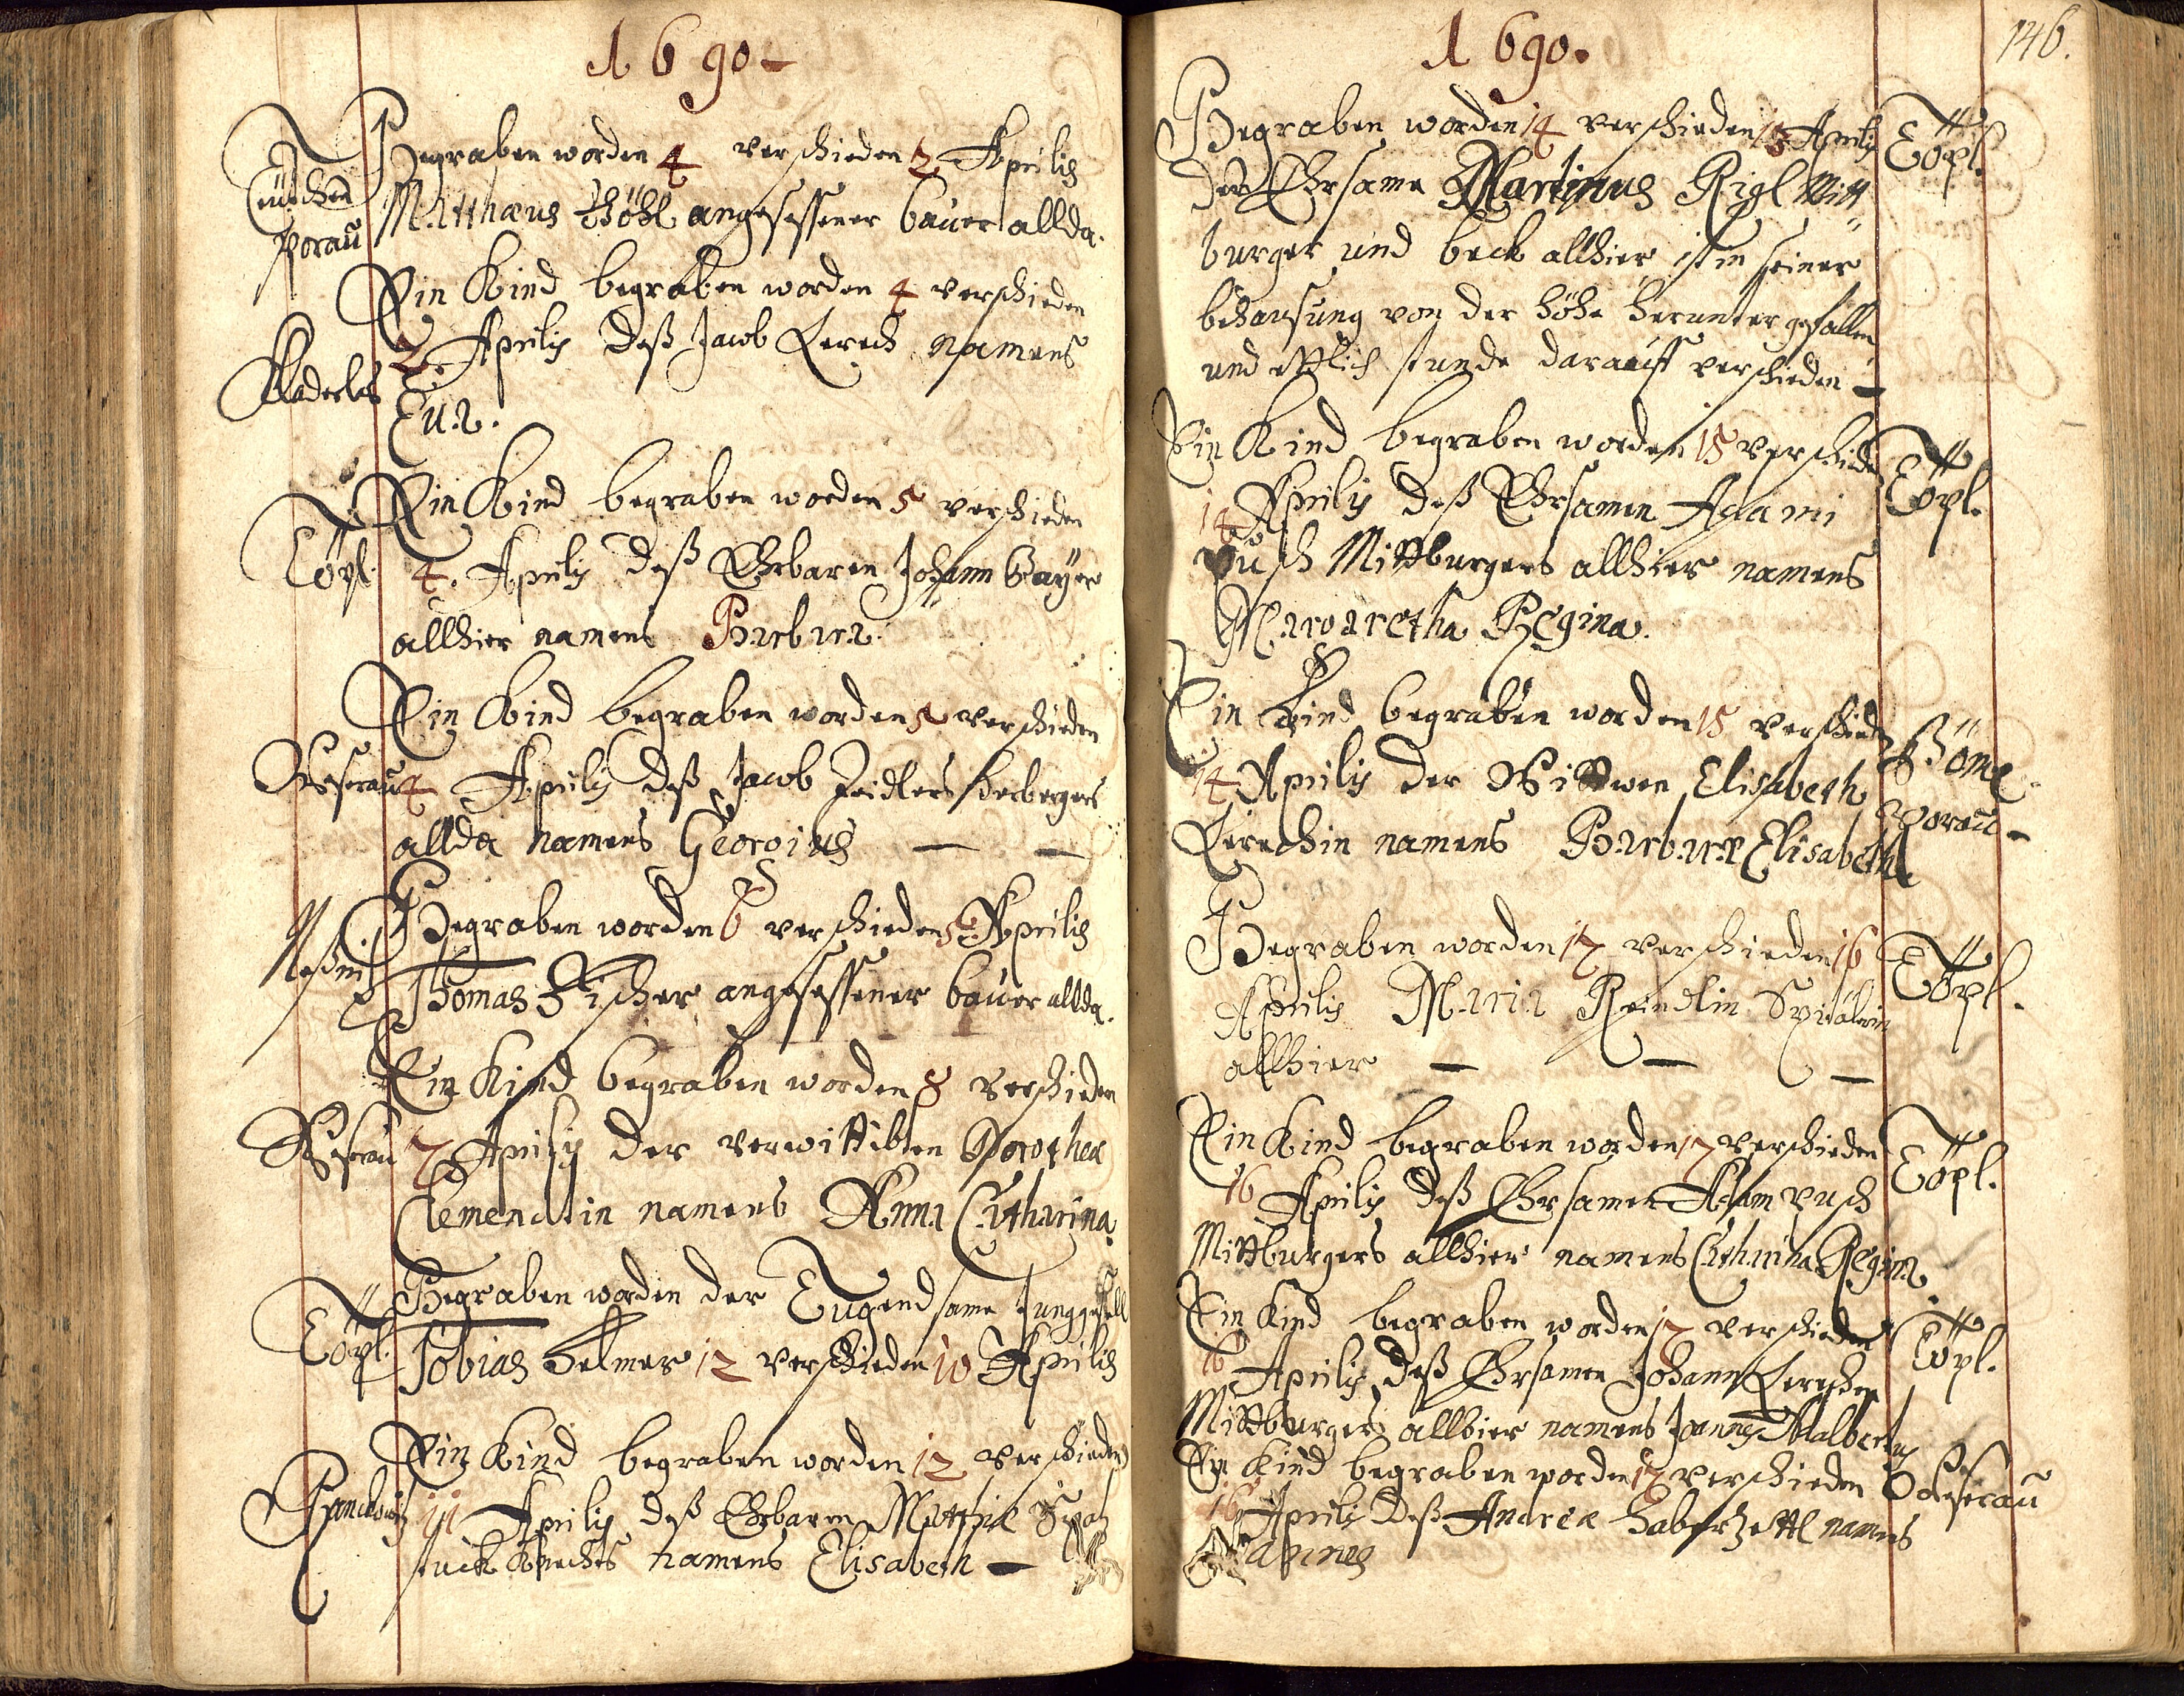 1690.
Begraben worden 4 verschieden 2 Aprilis
Teütschen
Matthæus Höhl angesessener bauer allda.
Thorau
Ein Kind begraben worden 4 verschieden
2. Aprilis deß Jacob Lerch namens
Haderles
Eua.
Ein Kind begraben worden 5 verschieden
Töpl. 4. Aprilis deß Ehrbaren Johann Bayer
allhier namens Barbara.
Ein Kind begraben worden 5 verschieden
4 Aprilis deß Jacob Zeidlers herbergers
allda namens Georgius
Begraben worden 6 verschieden 5 Aprilis
Thomas Fischer angesessener bauer allda.
Ein Kind begraben worden 8 verschieden
7 Aprilis der verwittibten Dorothea
Clementin namens Anna Catharina
Begraben worden der Tugendsame Junggesell
Töpl. Tobias Helmer 12 verschieden 10 Aprilis
Ein Kind begraben worden 12 verschieden
11 Aprilis deß Ehrbaren Matthiæ
stuck Knechts namens Elisabeth
146.
1690.
Begraben worden 14 verschieden 13 Aprilis
Töpl.
der Ehrsame Martinus Rigl Mitt
burger und beck allhier, ist in seiner
behausung von der höhe herunter gefallen
und etlich stunde darauff verschieden
Ein Kind begraben worden 15 verschieden
Töpl.
14 Aprilis deß Ehrsamen Adami
Pusch Mittburgers allhier namens
Margaretha Regina.
Ein Kind begraben worden 15 verschieden
Böhm.
14 Aprilis der Wittwen Elisabeth
Thorau
Lerchin namens Barbara Elisabeth
Begraben worden 17 verschieden 16
Töpl.
Aprilis Maria Reindlin Spitälerin
allhier
Ein Kind begraben worden 17 verschieden
Töpl.
16 Aprilis deß Ehrsamen Adam Pusch
Mittburgers allhier namens Catharina Regina
Ein Kind begraben worden 17 verschieden
Töpl.
16 Aprilis deß Ehrsamen Johann Lerchen
Mittburgers allhier namens Joannes Adalbertus
Ein Kind begraben worden 17 verschieden
16 Aprilis deß Andreæ Haberzettl namens
Joannes